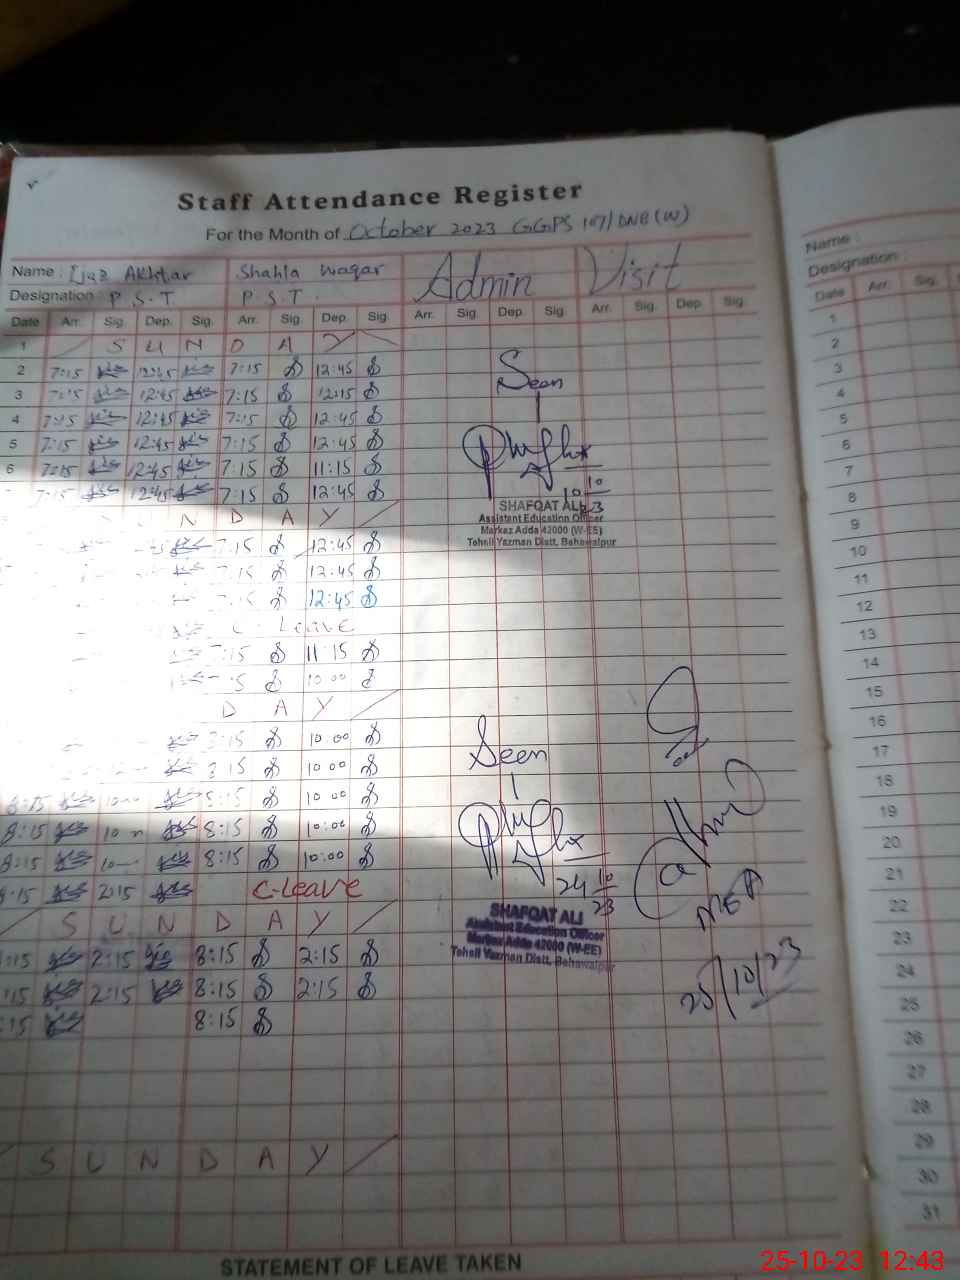 Staff Attendance Register
For the Month of October 2023 GGPS 107/DNB (W)
Name : Ijaz Akhtar Shahla Waqar Admin Visit
Designation : P.S.T P.S.T.
Date Arr. Sig. Dep. Sig. Arr. Sig. Dep. Sig. Arr. Sig. Dep. Sig. Arr. Sig. Dep. Sig.
1 S U N D A Y
2 7:15 12:45 7:15 12:45
3 7:15 12:45 7:15 12:15
4 7:15 12:45 7:15 12:45
5 7:15 12:45 7:15 12:45
6 7:15 12:45 7:15 11:15
7:15 12:45 7:15 12:45
N D A Y
7:15 12:45
7:15 12:45
7:15 12:45
C. Leave
7:15 11:15
10:00
D A Y
10:00
10:00
8:15 10:00
8:15 10 8:15 10:00
8:15 8:15 10:00
8:15 2:15 C-Leave
S U N D A Y
2:15 8:15 2:15
:15 2:15 8:15 2:15
:15 8:15
S U N D A Y
STATEMENT OF LEAVE TAKEN
Seen
10 10 23
SHAFQAT ALI
Assistant Education Officer
Markaz Adda 42000 (W-EE)
Tehsil Yazman Distt, Bahawalpur
Seen
24 10 23
SHAFQAT ALI
Assistant Education Officer
Markaz Adda 42000 (W-EE)
Tehsil Yazman Distt, Bahawalpur
MEA
25/10/23
Name :
Designation :
Date Arr. Sig.
1
2
3
4
5
6
7
8
9
10
11
12
13
14
15
16
17
18
19
20
21
22
23
24
25
26
27
28
29
30
31
25-10-23 12:43